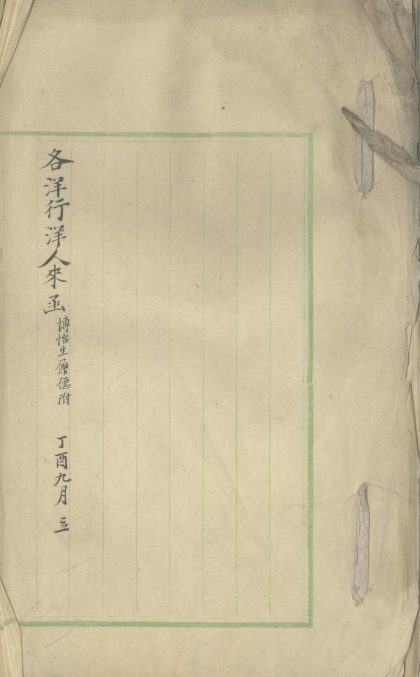 各洋行洋人來函 博怡生 德附 丁酉九月 三